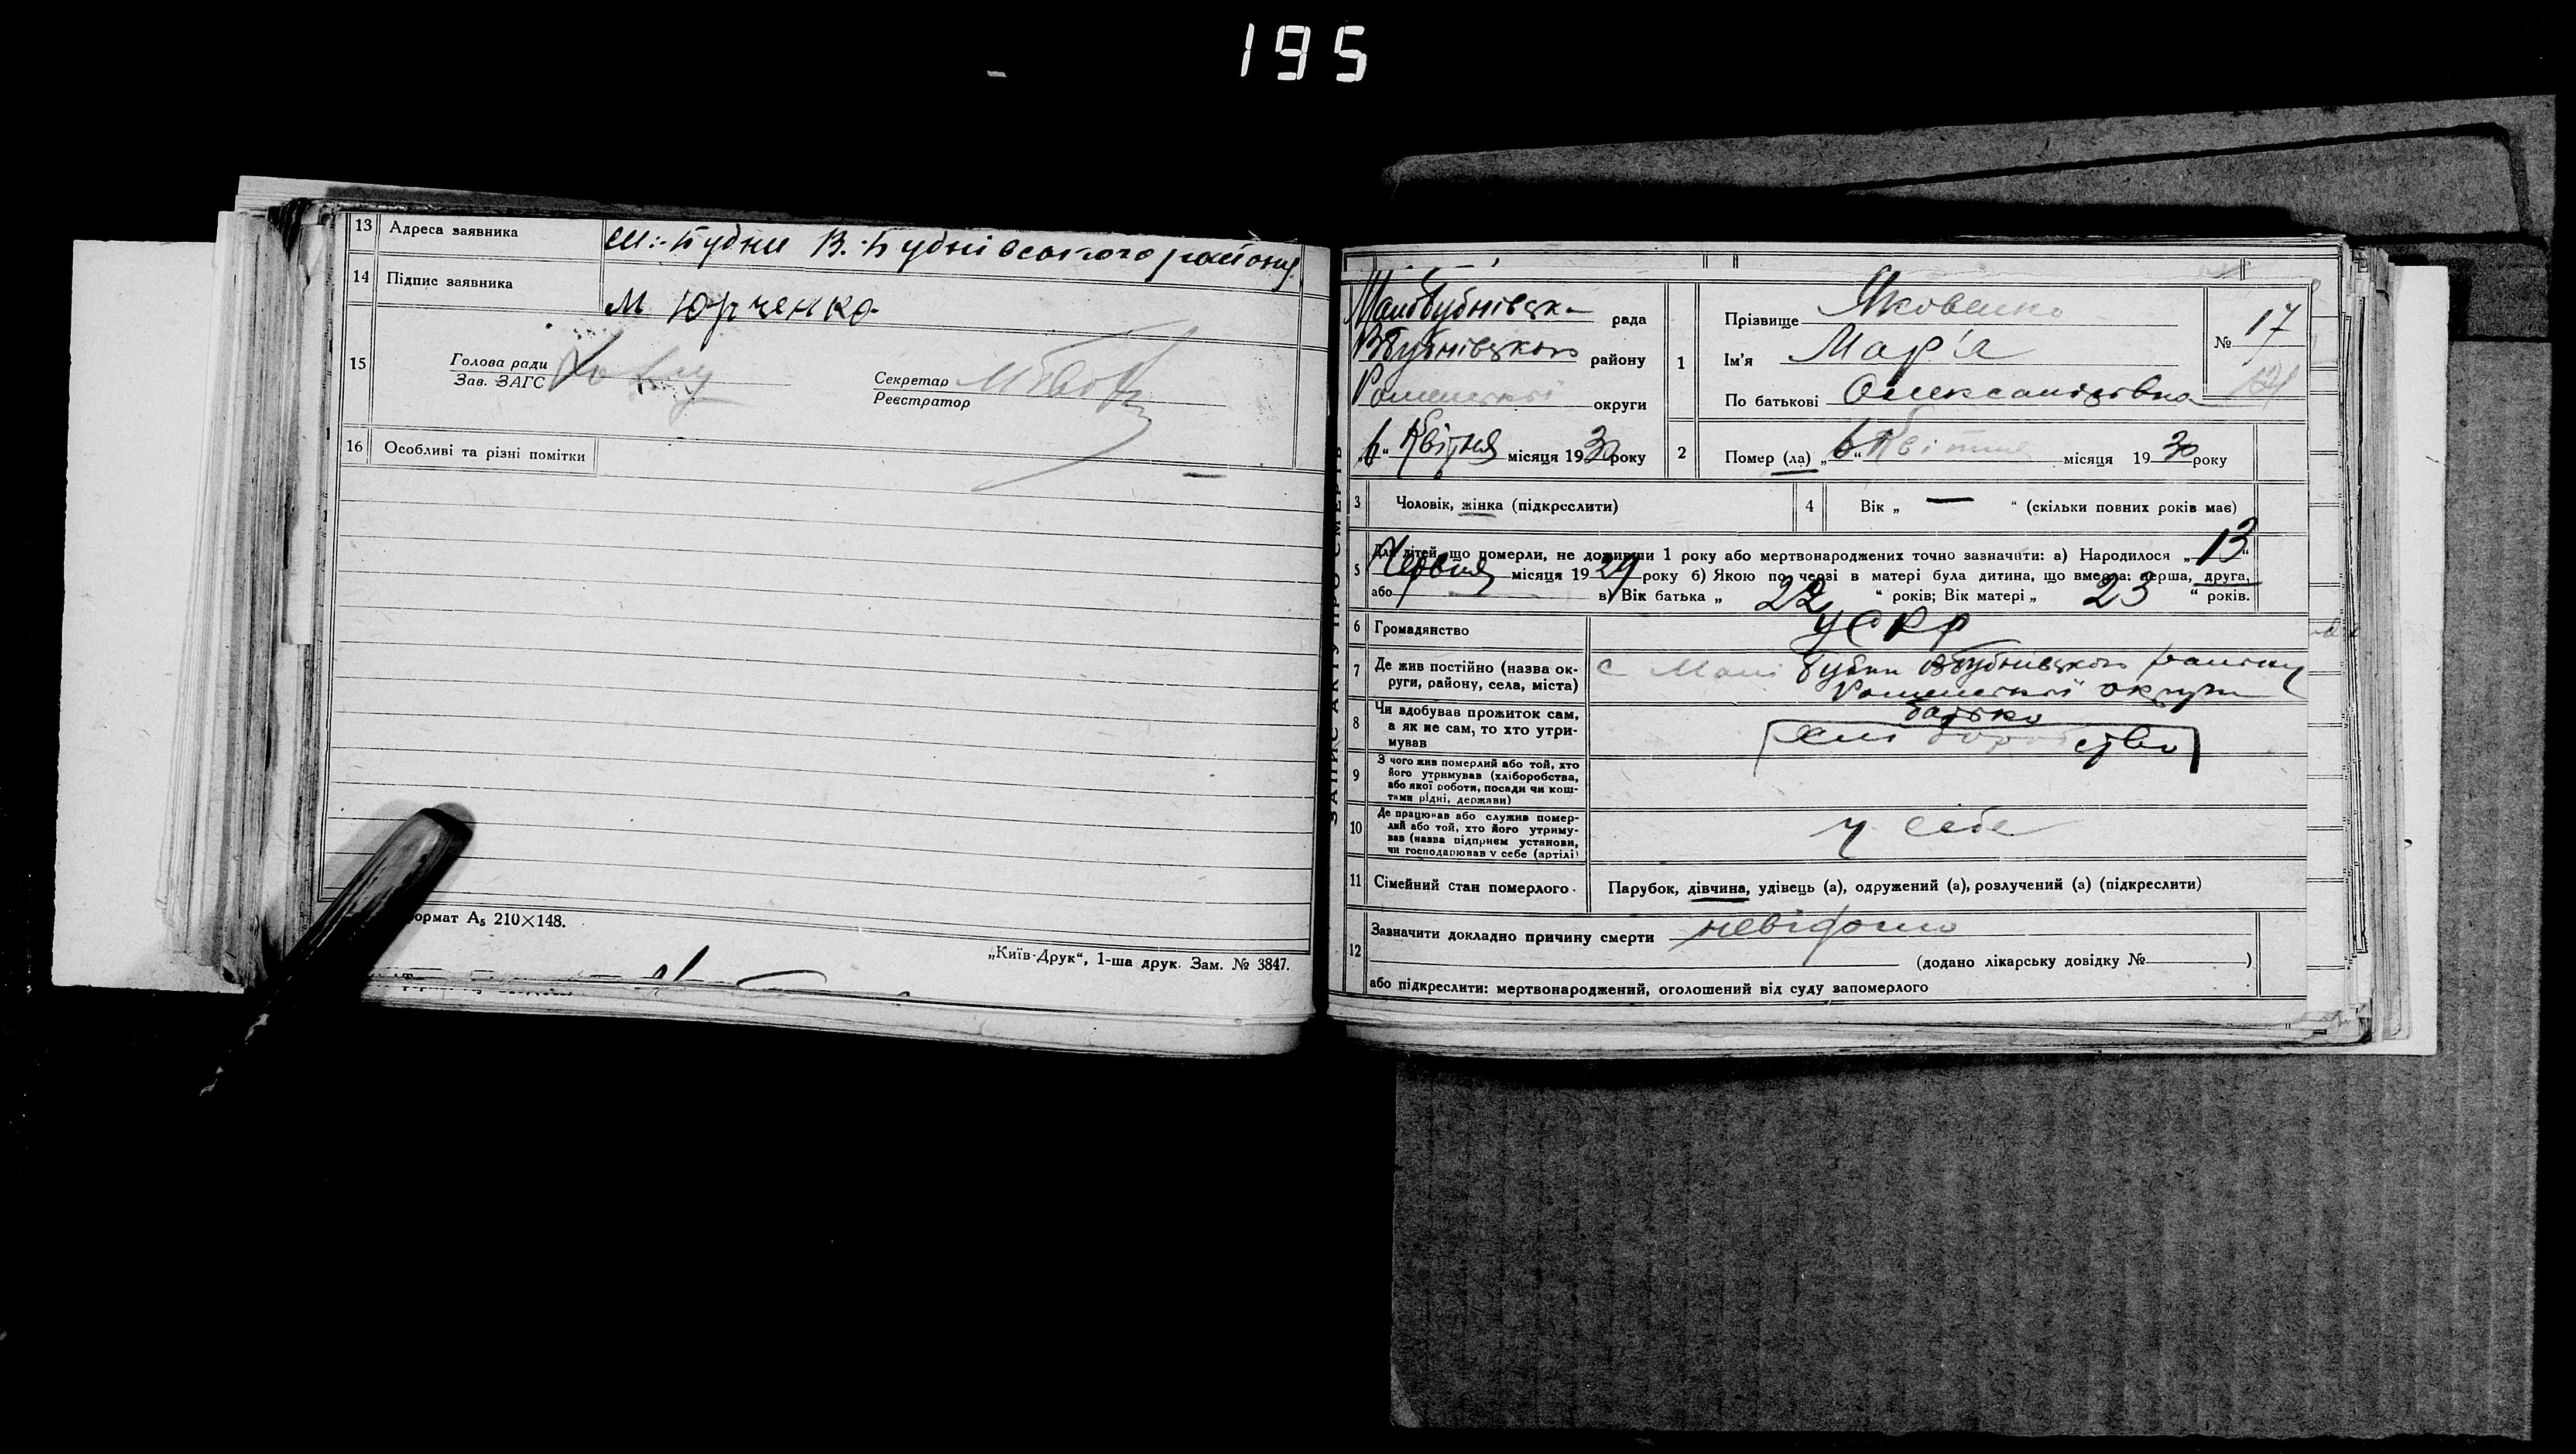 195
13 Адреса заявника М.-Будки В.-Бубнівського району
14 Підпис заявника М Юрченко
15 Голова ради
Зав. ЗАГС
Секретар
Реєстратор
16 Особливі та різні помітки
формат А₅ 210×148.
„Київ-Друк“, 1-ша друк. Зам. № 3847.
ЗАПИС АКТУ ПРО СМЕРТЬ
Малобубнівська рада
ВБубнівського району
Роменської округи
„6“ Квітня місяця 1930 року
1 Прізвище Яковенко
Ім'я Мар'я
По батькові Олександрівна
№ 17
2 Помер (ла) „6“ Квітня місяця 1930 року
3 Чоловік, жінка (підкреслити)
4 Вік „ — “ (скільки повних років має)
5 Для дітей, що померли, не доживши 1 року або мертвонароджених точно зазначити: а) Народилося „13“
Червня місяця 1929 року б) Якою по черзі в матері була дитина, що вмерла: перша, друга,
або в) Вік батька „ 22 “ років; Вік матері „ 23 “ років.
6 Громадянство УСРР
7 Де жив постійно (назва округи, району, села, міста) с Малі Бубни ВБубнівського району
Роменської округи
8 Чи здобував прожиток сам, а як не сам, то хто утримував батько
9 З чого жив померлий або той, хто його утримував (хліборобства, або якої роботи, посади чи коштами рідні, держави)
10 Де працював або служив померлий або той, хто його утримував (назва підприєм установи, чи господарював у себе (артілі) у себе
11 Сімейний стан померлого. Парубок, дівчина, удівець (а), одружений (а), розлучений (а) (підкреслити)
12 Зазначити докладно причину смерти невідомо
(додано лікарську довідку № )
або підкреслити: мертвонароджений, оголошений від суду запомерлого